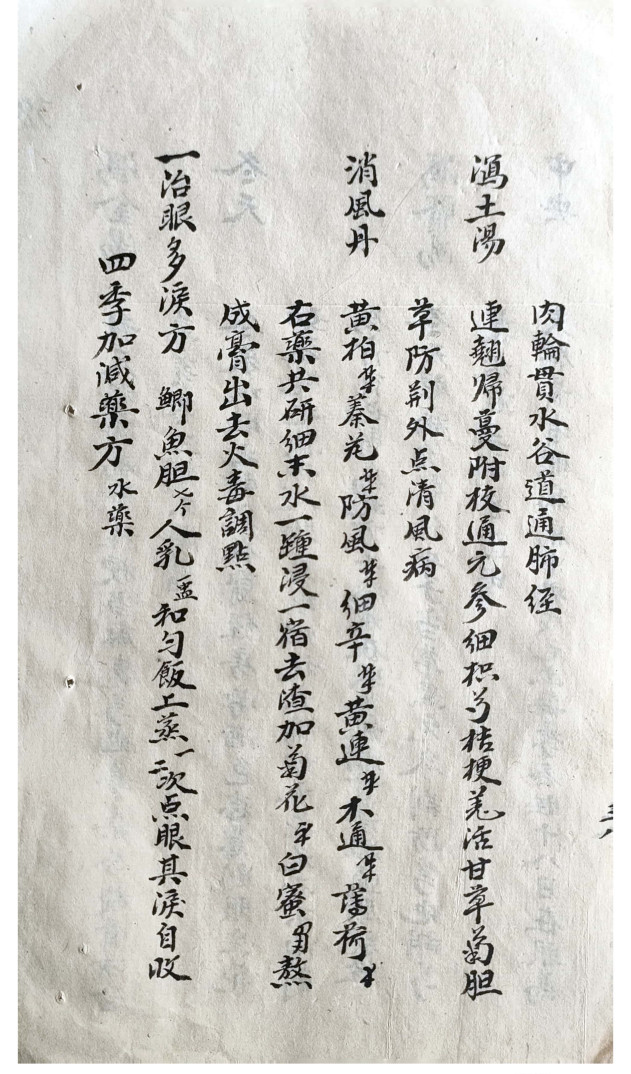 肉輪貫水谷道通肺经
瀉土湯
連翹帰蔓附枝通元参细枳芎桔梗羌活甘草菊胆
草防荆外点清風病
消風丹
黄柏 秦艽 防風 细辛 黄連 木通 薄荷
右藥共研细末水一鍾浸一宿去渣加菊花 白蜜 熬
成膏出去火毒調點
一治眼多淚方 鲫魚胆 人乳 盂 和匀飯上蒸一二次点眼其淚自收
四季加減藥方 水藥